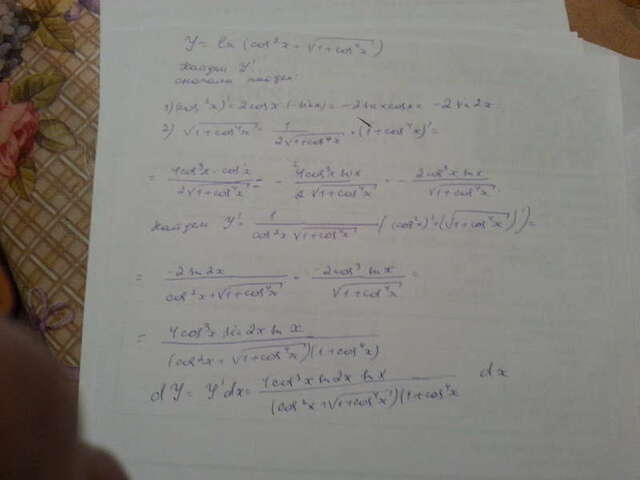 y = ln (cos²x + √1+cos⁴x)
Найдем y'
сначала найдем:
1) (cos²x)' = 2cosx (-sinx) = -2sinxcosx = -2sin2x
2) √1+cos⁴x' = 1/(2√1+cos⁴x) · (1+cos⁴x)' =
= 4cos³x · cos'x/(2√1+cos⁴x) = - 4cos³x sinx/(2√1+cos⁴x) = - 2cos³x sinx/√1+cos⁴x
Найдем y' = 1/(cos²x · √1+cos⁴x) ((cos²x)' + (√1+cos⁴x)') =
= -2sin2x/(cos²x+√1+cos⁴x) · -2cos³ sinx/√1+cos⁴x =
= 4cos³x sin2x sin x/((cos²x + √1+cos⁴x)(1+cos⁴x)
dy = y'dx = 4cos³x sin2x sinx/((cos²x+√1+cos⁴x)(1+cos⁴x dx